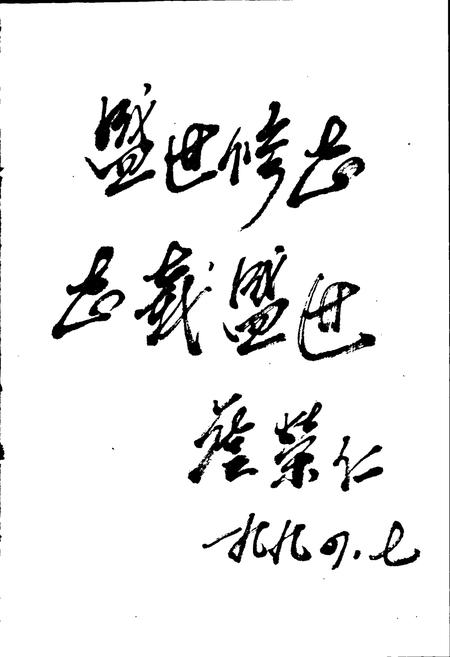 盛世修志
志载盛世
荣仁
一九九四.七